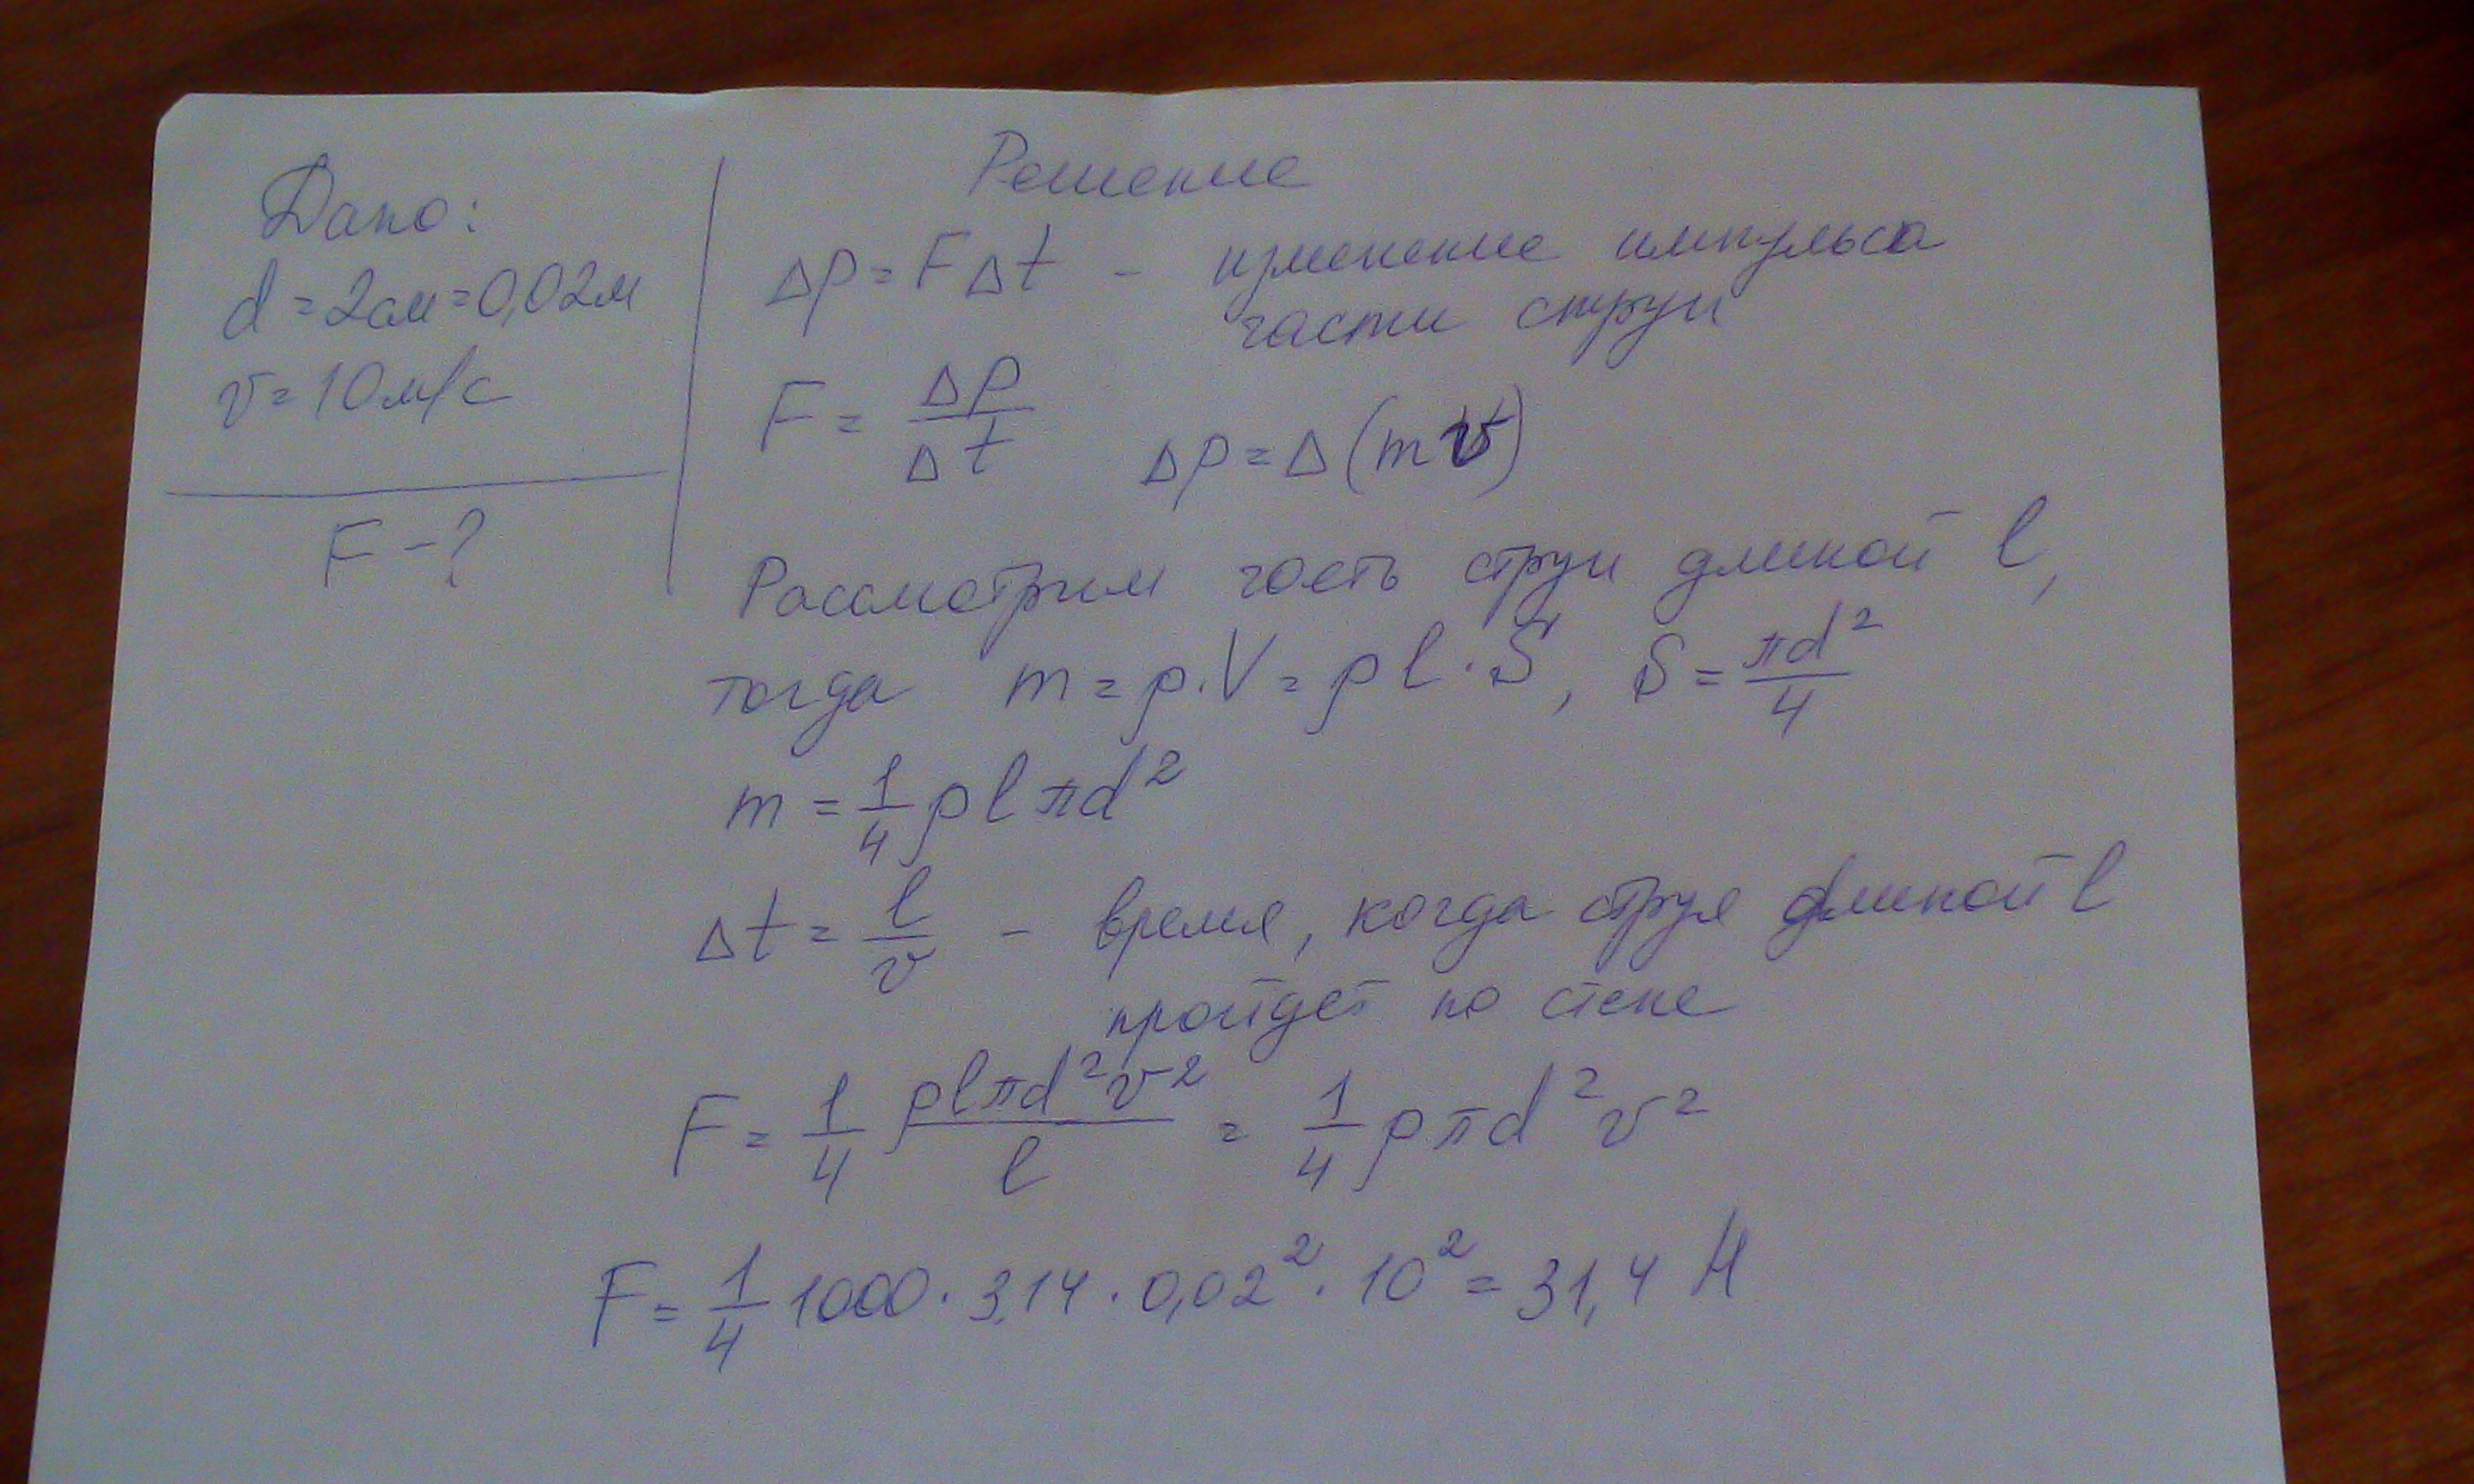 Дано:
d = 2см = 0,02м
v = 10м/с
F - ?
Решение
Δp = FΔt - изменение импульса
части струи
F = Δp/Δt Δp = Δ(mv)
Рассмотрим часть струи длиной l,
тогда m = ρ·V = ρl·S, S = πd²/4
m = 1/4 ρlπd²
Δt = l/v - время, когда струя длиной l
пройдет по стене
F = 1/4 ρlπd²v²/l = 1/4 ρπd²v²
F = 1/4 1000 · 3,14 · 0,02² · 10² = 31,4 Н